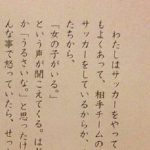 わたしはサッカーをやって
もよくあって、相手チームの
サッカーをしているからか、
たちから、
「女の子がいる。」
という声が聞こえてくる。はじ
か「うるさいな。」と思ったけ
んな事で怒っていたら、せっ